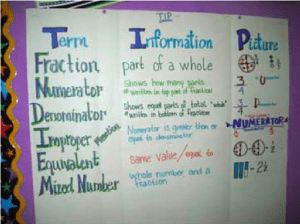 TIP
Term Information Picture
Fraction part of a whole
Numerator Shows how many parts
*written in top part of fraction
3 Numerator
4
Denominator Shows equal parts of total "whole"
*written in bottom of fraction
3
4 D
Improper Fraction Numerator is greater than or
equal to denominator
NUMERATOR
Equivalent Same value/equal to
Mixed Number whole number and a
fraction